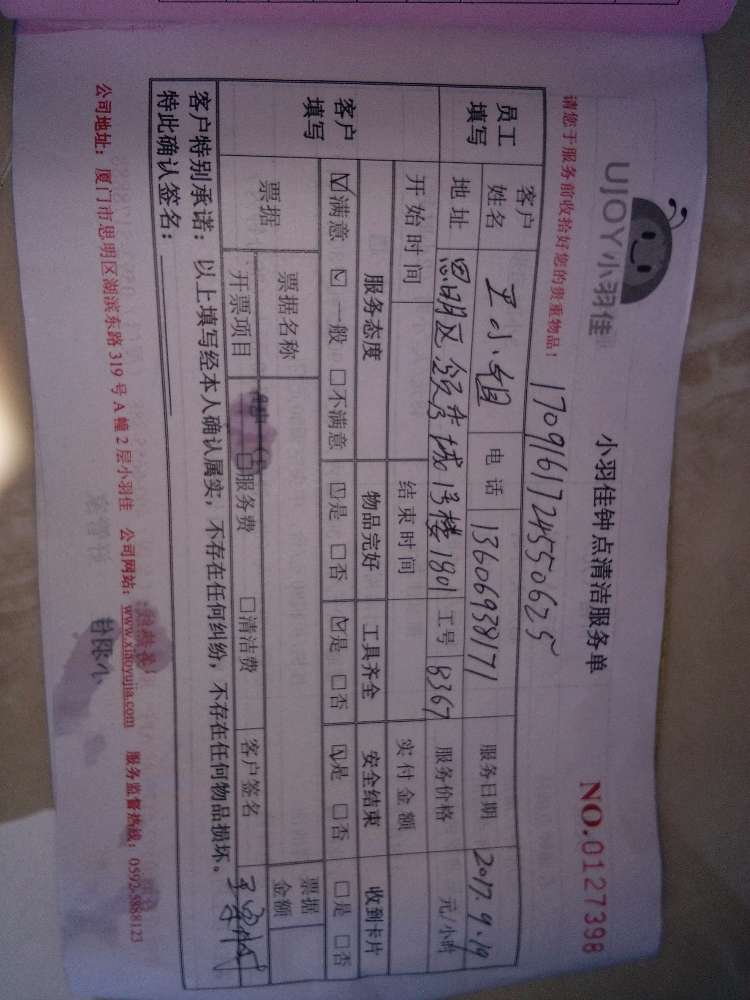 UJOY小羽佳
小羽佳钟点清洁服务单
NO.0127398
请您于服务前收拾好您的贵重物品！
1709161724550625
员工填写
客户姓名 王小姐 电话 13606938171 服务日期 2017.9.19
地址 思明区 领秀城13楼1801 工号 8367 服务价格 元/小时
开始时间 结束时间 实付金额
客户填写
服务态度 物品完好 工具齐全 安全结束 收到卡片
☑满意 ☑一般 □不满意 ☑是 □否 ☑是 □否 ☑是 □否 □是 □否
票据 票据名称 票据金额
开票项目 □服务费 □清洁费 客户签名
客户特别承诺：以上填写经本人确认属实，不存在任何纠纷，不存在任何物品损坏。
特此确认签名：
公司地址：厦门市思明区湖滨东路319号A幢2层小羽佳 公司网站：www.xiaoyujia.com 服务监督热线：0592-5888123